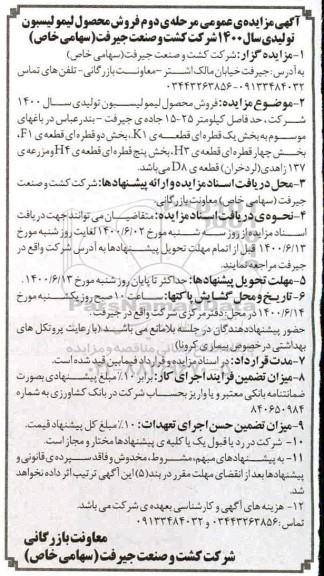 آگهی مزایده‌ی عمومی مرحله‌ی دوم فروش محصول لیمو لیسبون
تولیدی سال ۱۴۰۰ شرکت کشت و صنعت جیرفت (سهامی خاص)
۱- مزایده گزار: شرکت کشت و صنعت جیرفت (سهامی خاص)
به آدرس: جیرفت خیابان مالک اشتر - معاونت بازرگانی - تلفن‌های تماس
۰۹۱۳۳۴۸۴۰۳۲ - ۰۳۴۴۳۲۶۳۸۵۶
۲- موضوع مزایده: فروش محصول لیمو لیسبون تولیدی سال ۱۴۰۰
شرکت، حد فاصل کیلومتر ۲۵-۱۵ جاده‌ی جیرفت - بندرعباس در باغهای
موسوم به بخش یک قطره ای قطعه‌ی K۱، بخش دو قطره ای قطعه‌ی F۱،
بخش چهار قطره ای قطعه‌ی H۳، بخش پنج قطره ای قطعه‌ی H۴ و مزرعه‌ی
۱۳۷ زاهدی (لردخزان) قطعه‌ی D۸ می باشد.
۳- محل دریافت اسناد مزایده و ارائه پیشنهادها: شرکت کشت و صنعت
جیرفت (سهامی خاص) معاونت بازرگانی.
۴- نحوه‌ی دریافت اسناد مزایده: متقاضیان می توانند جهت دریافت
اسناد مزایده از روز سه شنبه مورخ ۱۴۰۰/۶/۰۲ لغایت روز شنبه مورخ
۱۴۰۰/۶/۱۳ قبل از اتمام مهلت تحویل پیشنهادها به آدرس شرکت واقع در
جیرفت مراجعه نمایند.
۵- مهلت تحویل پیشنهادها: حداکثر تا پایان روز شنبه مورخ ۱۴۰۰/۶/۱۳.
۶- تاریخ و محل گشایش پاکتها: ساعت ۱۰ صبح روز یکشنبه مورخ
۱۴۰۰/۶/۱۴ در محل: دفتر مرکزی شرکت واقع در جیرفت.
حضور پیشنهاددهندگان در جلسه بلامانع می باشد (با رعایت پروتکل های
بهداشتی در خصوص بیماری کرونا)
۷- مدت قرارداد: در اسناد مزایده و قرارداد فیمابین قید شده است.
۸- میزان تضمین فرآیند اجرای کار: برابر ۱۰٪ مبلغ پیشنهادی بصورت
ضمانتنامه بانکی معتبر و یا واریز بحساب شرکت در بانک کشاورزی به شماره
۸۴۰۶۵۰۹۸۴
۹- میزان تضمین حسن اجرای تعهدات: ۱۰٪ مبلغ کل پیشنهاد قیمت.
۱۰- شرکت در رد یا قبول یک یا کلیه ی پیشنهادها مختار و مجاز است.
۱۱- به پیشنهادهای مبهم، مشروط، مخدوش و فاقد سپرده‌ی قانونی و
پیشنهادها بعد از انقضای مهلت مقرر در بند (۵) این آگهی ترتیب اثر داده نخواهد
شد.
۱۲- هزینه های آگهی و کارشناسی بعهده ی شرکت می باشد.
تماس: ۰۳۴۴۳۲۶۳۸۵۶ و ۰۹۱۳۳۴۸۴۰۳۲
معاونت بازرگانی
شرکت کشت و صنعت جیرفت (سهامی خاص)